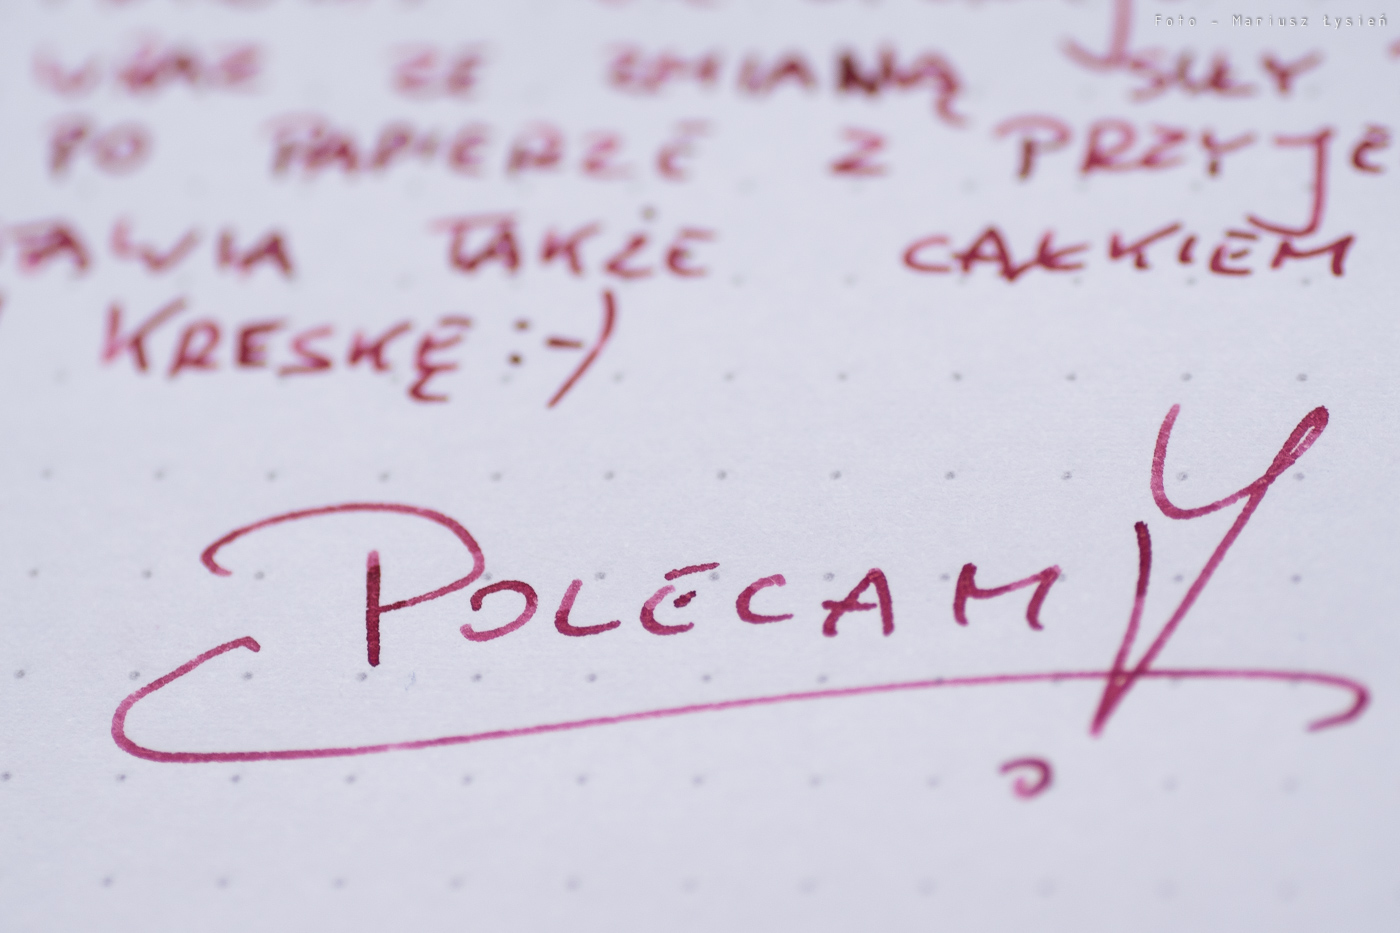 Foto - Mariusz Łysień
ZE ZMIANĄ SIŁY
PO PAPIERZE Z PRZYJE
TAWIA TAKŻE CAŁKIEM
KRESKĘ :-)
POLECAM!